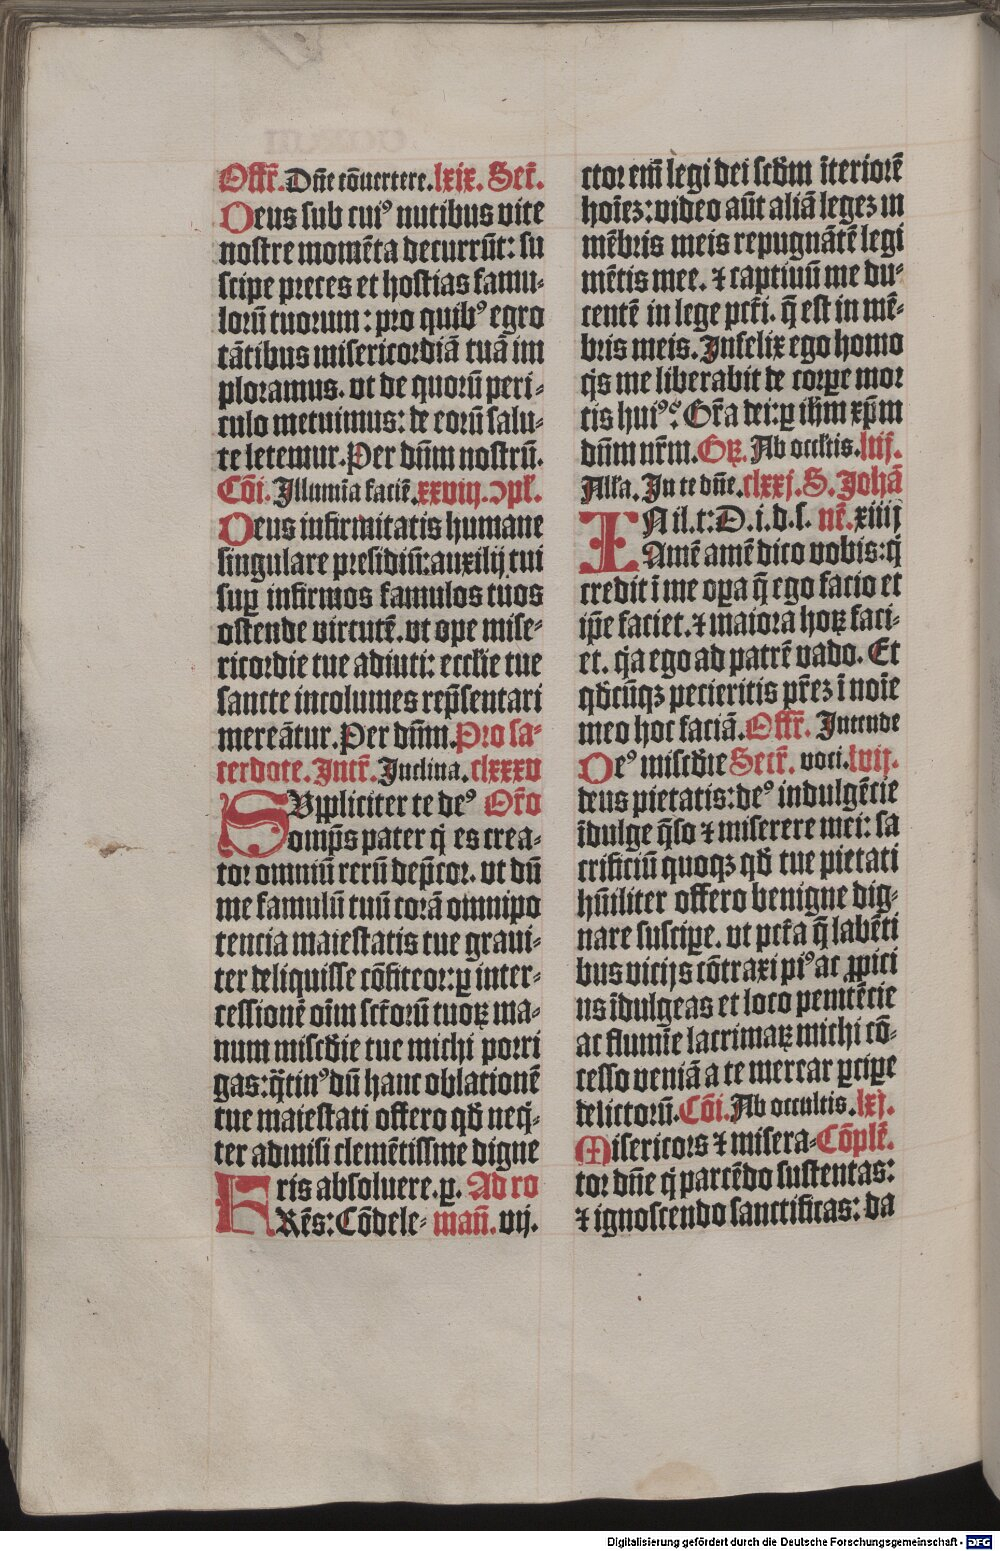 Offr̄. Dn̄e cōuertere. lxix. Secr̄.
Deus sub cuiꝰ nutibus vite
nostre momēta decurrūt: su
scipe preces et hostias famu⸗
lorū tuorum: pro quibꝰ egro
tātibus misericordiā tuā im
ploramus. vt de quorū peri⸗
culo metuimus: de eorū salu⸗
te letemur. Per dn̄m nostrū.
Cōi. Illumīa faciē. xxviij. ↄpl̄.
Deus infirmitatis humane
singulare presidiū: auxilij tui
suꝑ infirmos famulos tuos
ostende virtutē. vt ope mise⸗
ricordie tue adiuti: eccl̄ie tue
sancte incolumes rep̄sentari
mereātur. Per dn̄m. Pro sa⸗
cerdote. Intr̄. Inclina. clxxxv
SVppliciter te deꝰ Or̄o
omp̄s pater q̇ es crea⸗
tor omniū rerū dep̄cor. vt dū
me famulū tuū corā omnipo
tencia maiestatis tue graui⸗
ter deliquisse cōfiteor: ꝑ inter⸗
cessionē oīm sctōrū tuoꝝ ma⸗
num mīscd̄ie tue michi porri
gas: q̄tinꝰ dū hanc oblationē
tue maiestati offero qd̄ neq̇⸗
ter admisi clemētissime digne
ris absoluere. ꝑ. Ad ro
FRēs: Cōdele⸗ man̄. vij.
ctor em̄ legi dei scd̄m īteriorē
hoīeꝫ: video aūt aliā legeꝫ in
mēbris meis repugnātē legi
mētis mee. ⁊ captiuū me du⸗
centē in lege pcc̄ti. q̄ est in mē⸗
bris meis. Infelix ego homo
q̇s me liberabit de corꝑe mor
tis huiꝰ? Gr̄a dei: ꝑ ih̄m xp̄m
dn̄m nr̄m. Gꝝ. Ab occl̄tis. lvij.
All̄a. In te dn̄e. clxxj. S. Johā
IN il. t: D. i. d. s. nē. xiiij
Amē amē dico vobis: q̇
credit ī me oꝑa q̄ ego facio et
ip̄e faciet. ⁊ maiora hoꝝ faci⸗
et. q̇a ego ad patrē vado. Et
qd̄cūqꝫ pecieritis pr̄eꝫ ī noīe
meo hoc faciā. Offr̄. Intende
Deꝰ mīscd̄ie Secr̄. voci. lvij.
deus pietatis: deꝰ indulgēcie
īdulge q̄so ⁊ miserere mei: sa
crificiū quoqꝫ qd̄ tue pietati
hūiliter offero benigne dig⸗
nare suscipe. vt pcc̄ta q̄ labēti
bus vicijs cōtraxi piꝰ ac ꝓpici
us īdulgeas et loco penitēcie
ac flumīe lacrimaꝝ michi cō⸗
cesso veniā a te mercar ꝑcipe
delictorū. Cōi. Ab occultis. lxj.
Misericors ⁊ misera⸗ Cōplē.
tor dn̄e q̇ parcēdo sustentas:
⁊ ignoscendo sanctificas: da
Digitalisierung gefördert durch die Deutsche Forschungsgemeinschaft - DFG